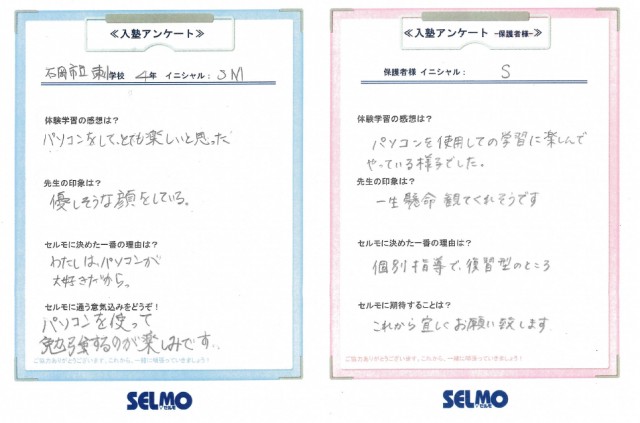 ≪入塾アンケート≫
石岡市立東小学校 4年 イニシャル： J M
体験学習の感想は？
パソコンをして、とても楽しいと思った
先生の印象は？
優しそうな顔をしている。
セルモに決めた一番の理由は？
わたしは、パソコンが
大好きだから。
セルモに通う意気込みをどうぞ！
パソコンを使って
勉強するのが楽しみです。
ご協力ありがとうございます。これから、一緒に頑張っていきましょう！
SELMO
セルモ
≪入塾アンケート -保護者様-≫
保護者様 イニシャル： S
体験学習の感想は？
パソコンを使用しての学習に楽しんで
やっている様子でした。
先生の印象は？
一生懸命 観てくれそうです
セルモに決めた一番の理由は？
個別指導で、復習型のところ
セルモに期待することは？
これから宜しくお願い致します
ご協力ありがとうございます。これから、一緒に頑張っていきましょう！
SELMO
セルモ